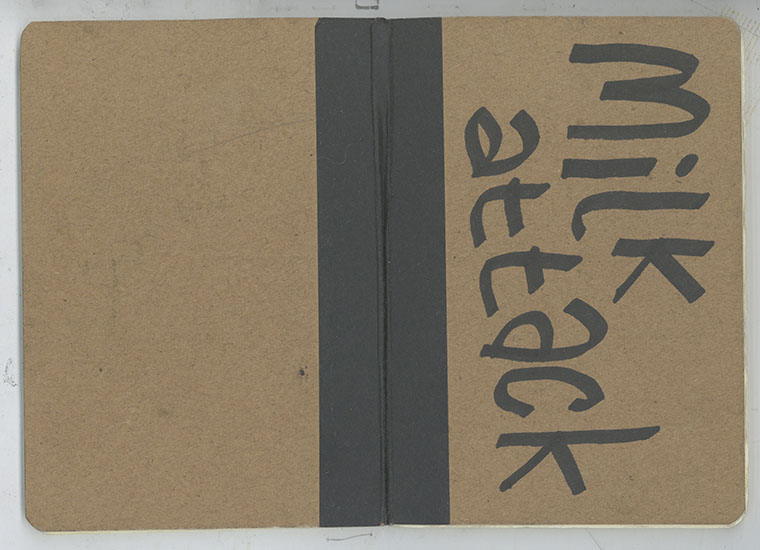 milk
attack